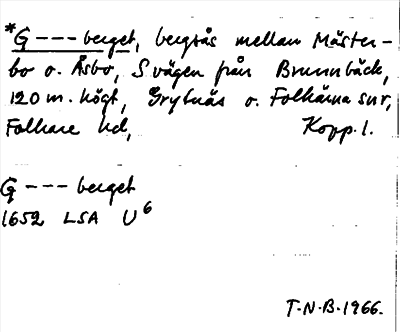 *G---berget, bergås mellan Mäster-
bo o. Åsbo, S vägen från Brunnbäck,
120 m. högt, Grytnäs o. Folkärna snr,
Folkare hd, Kopp. l.
G---berget
1652 LSA U6
T.N.B. 1966.